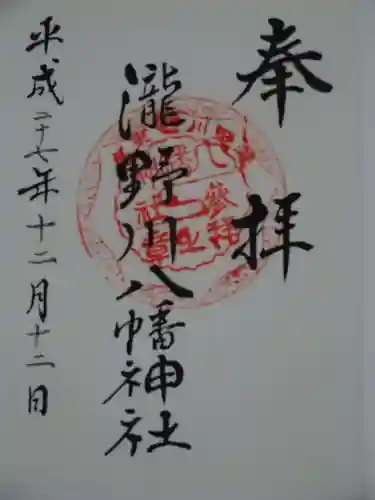 奉拝
瀧野川八幡神社
平成二十七年十二月十二日